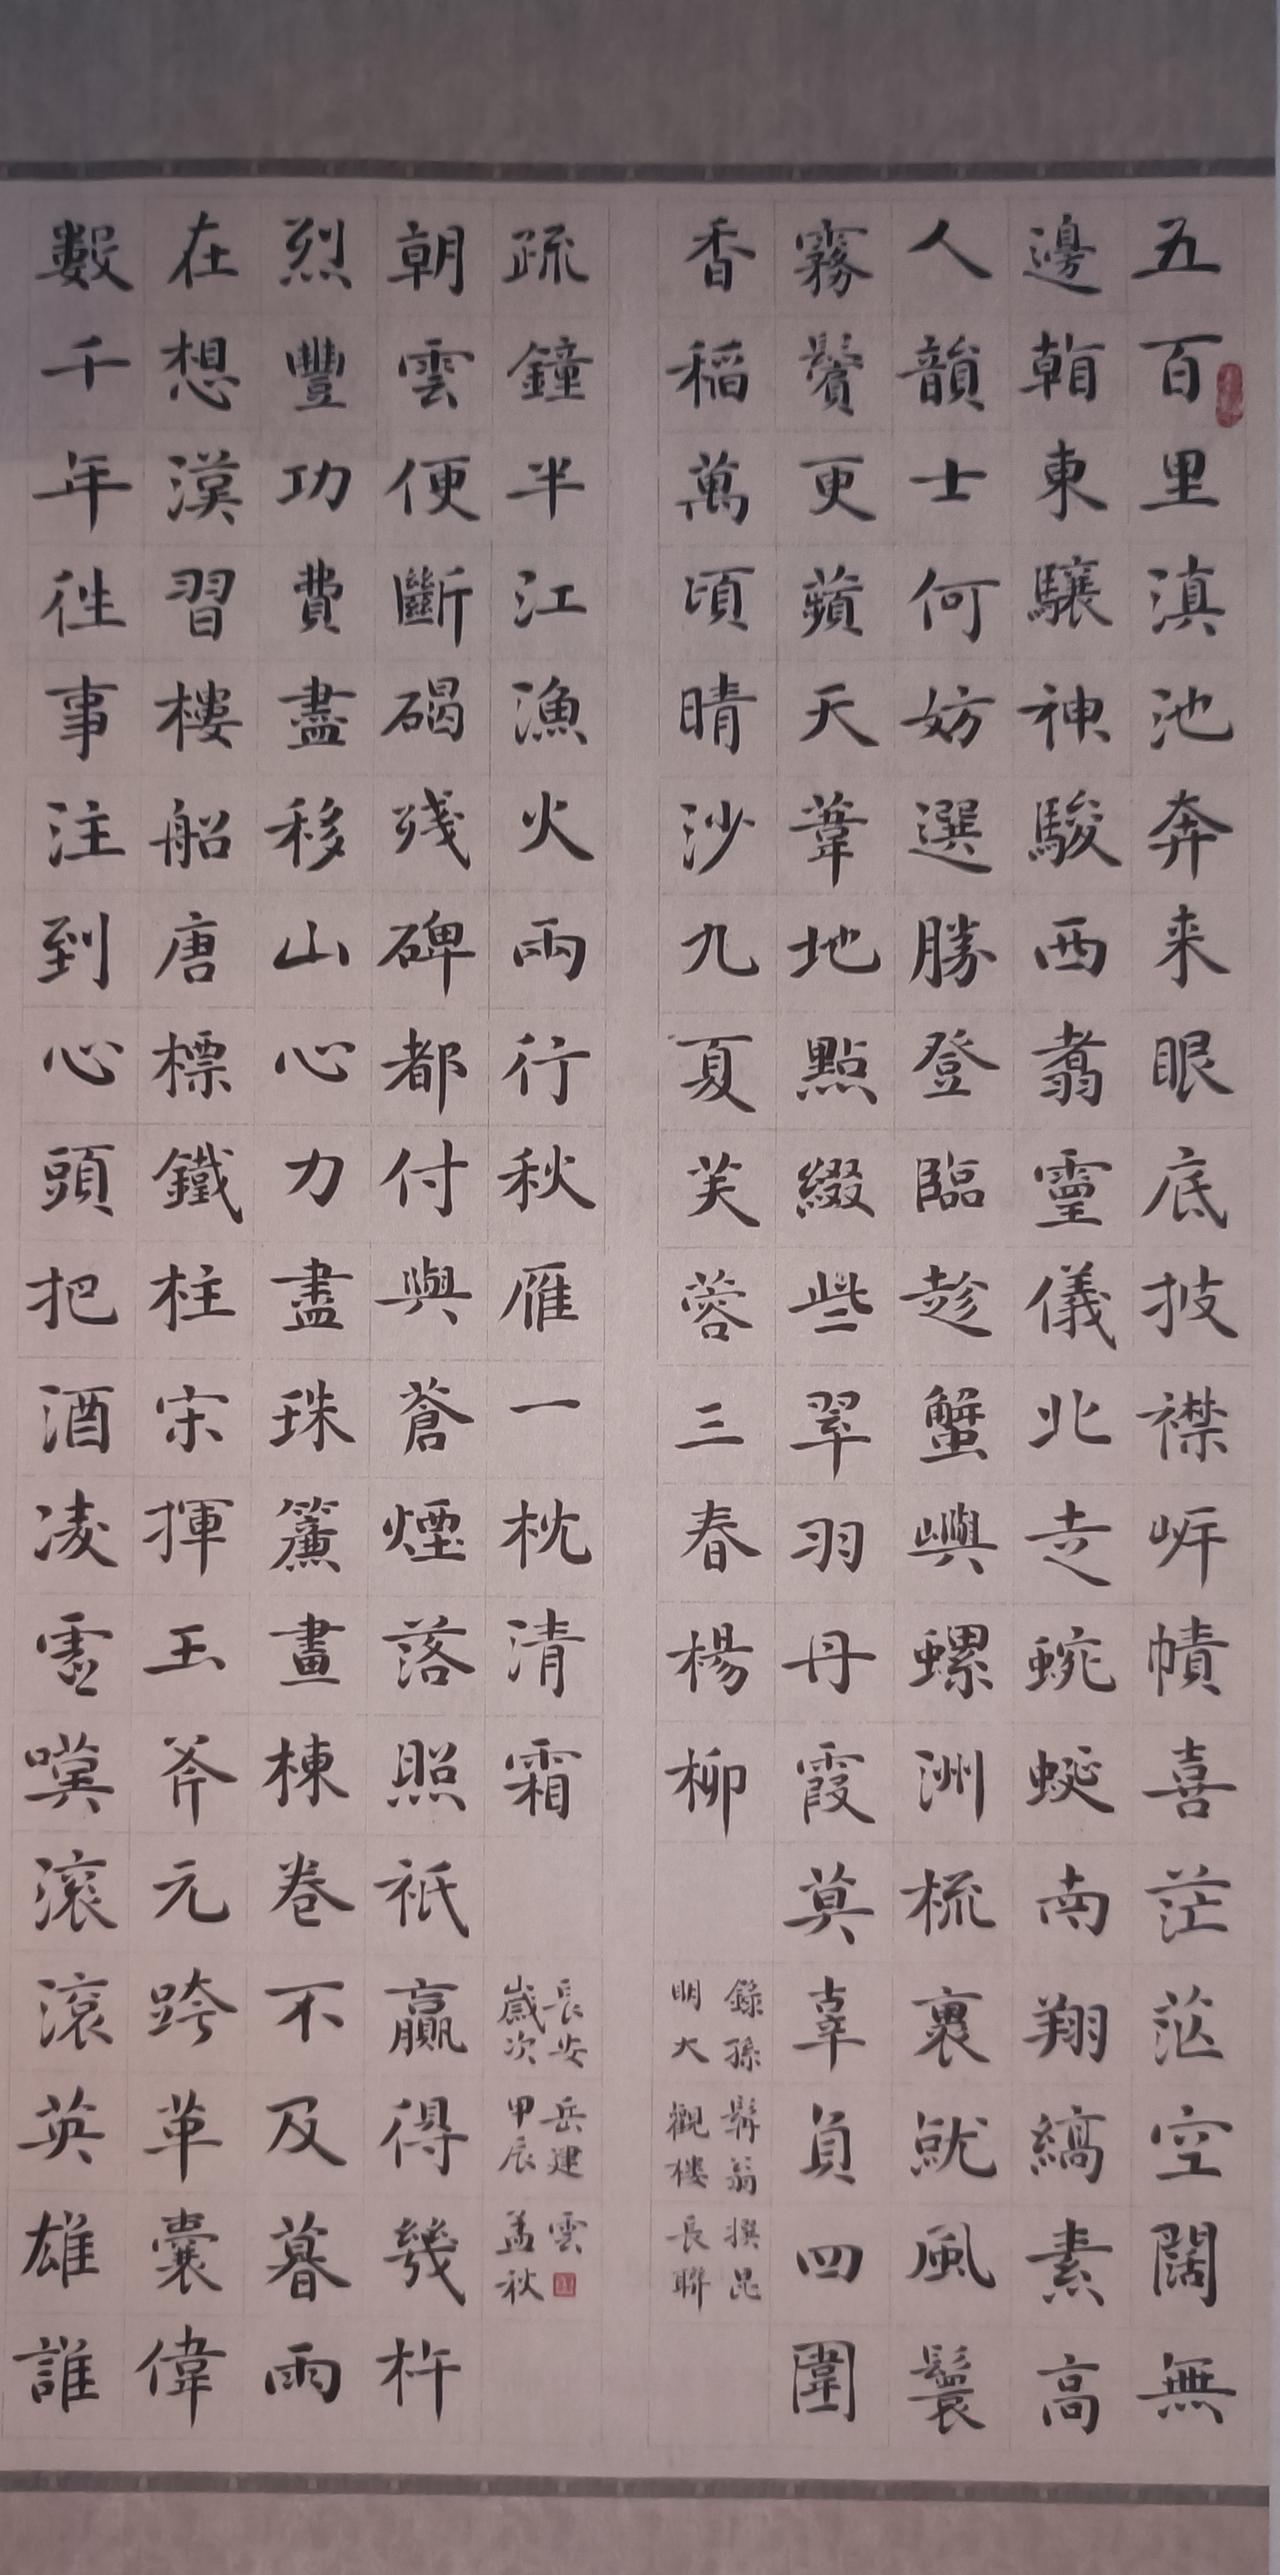 五百里滇池奔来眼底披襟岸幘喜茫茫空闊無
邊看東驤神駿西翥靈儀北走蜿蜒南翔縞素高
人韻士何妨選勝登臨趁蟹嶼螺洲梳裹就風鬟
霧鬢更蘋天葦地點綴些翠羽丹霞莫辜負四圍
香稻萬頃晴沙九夏芙蓉三春楊柳
錄孫髯翁撰昆
明大觀樓長聯
數千年往事注到心頭把酒凌虛嘆滾滾英雄誰
在想漢習樓船唐標鐵柱宋揮玉斧元跨革囊偉
烈豐功費盡移山心力盡珠簾畫棟卷不及暮雨
朝雲便斷碣殘碑都付與蒼煙落照祇贏得幾杵
疏鐘半江漁火兩行秋雁一枕清霜
歲次甲辰孟秋
長安岳建雲